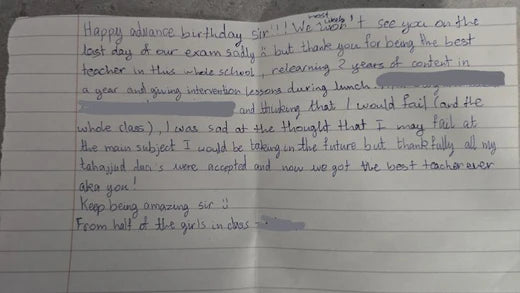 Happy advance birthday sir!!! We most likely won't see you on the
last day of our exam sadly :( but thank you for being the best
teacher in this whole school, relearning 2 years of content in
a year and giving intervention lessons during lunch.
and thinking that I would fail (and the
whole class), I was sad at the thought that I may fail at
the main subject I would be taking in the future but thankfully all my
tahajjud dua's were accepted and now we got the best teacher ever
aka you!
Keep being amazing sir :)
From half of the girls in class -